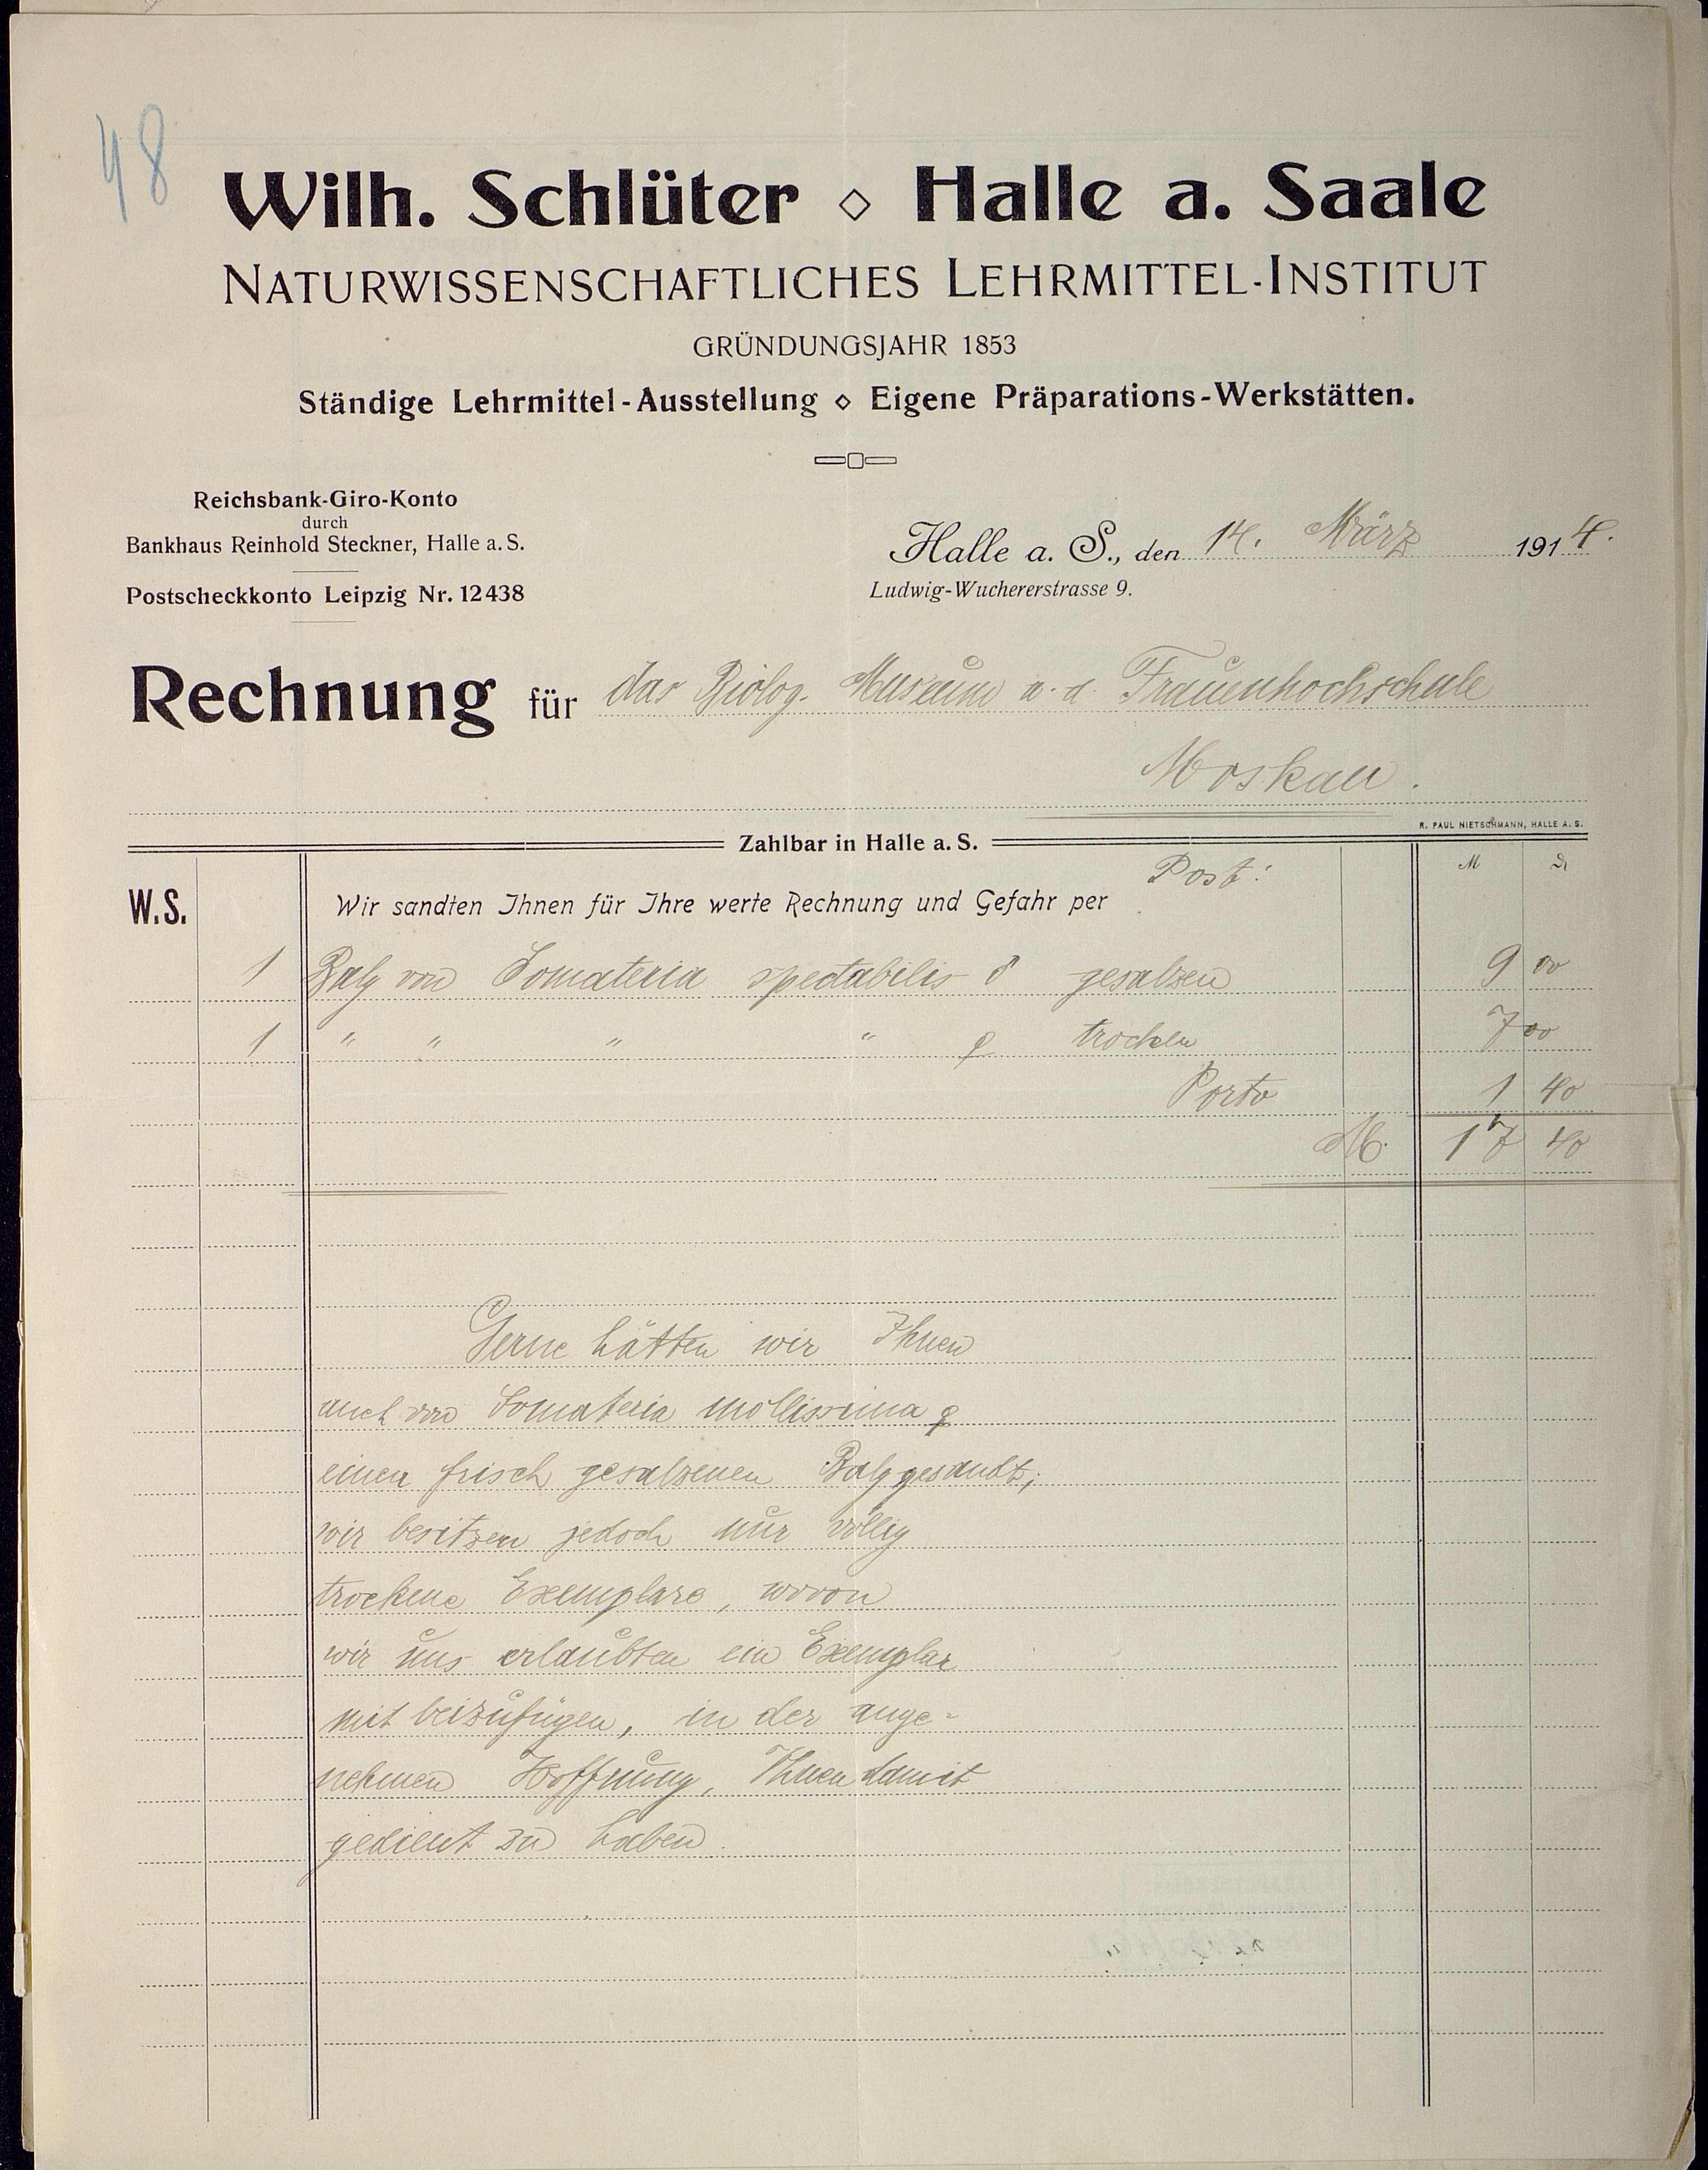 48
Wilh. Schlüter ◇ Halle a. Saale
NATURWISSENSCHAFTLICHES LEHRMITTEL-INSTITUT
GRÜNDUNGSJAHR 1853
Ständige Lehrmittel-Ausstellung ◇ Eigene Präparations-Werkstätten.
Reichsbank-Giro-Konto
durch
Bankhaus Reinhold Steckner, Halle a. S.
Postscheckkonto Leipzig Nr. 12438
Halle a. S., den 14. März 1914.
Ludwig-Wuchererstrasse 9.
Rechnung für das Biolog. Museum a. d. Frauenhochschule
Moskau.
R. PAUL NIETSCHMANN, HALLE A. S.
Zahlbar in Halle a. S.
M ₰
W.S. Wir sandten Ihnen für Ihre werte Rechnung und Gefahr per Post:
1 Balg von Somateria spectabilis ♂ gesalzen 9 00
1 " " " " ♀ trocken 7 00
Porto 1 40
M. 17 40
Gerne hätten wir Ihnen
auch von Somateria mollissima ♀
einen frisch gesalzenen Balg gesandt;
wir besitzen jedoch nur völlig
trockene Exemplare, wovon
wir uns erlaubten ein Exemplar
mit beizufügen, in der ange-
nehmen Hoffnung, Ihnen damit
gedient zu haben.